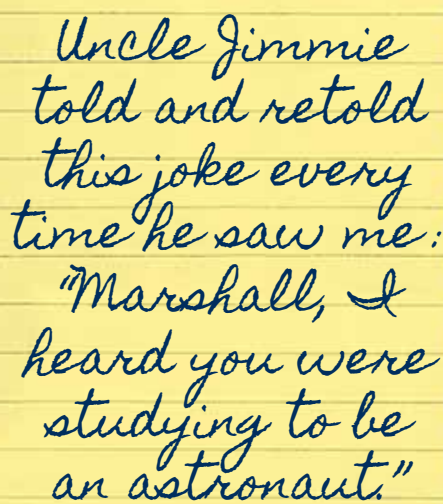 Uncle Jimmie
told and retold
this joke every
time he saw me:
"Marshall, I
heard you were
studying to be
an astronaut."